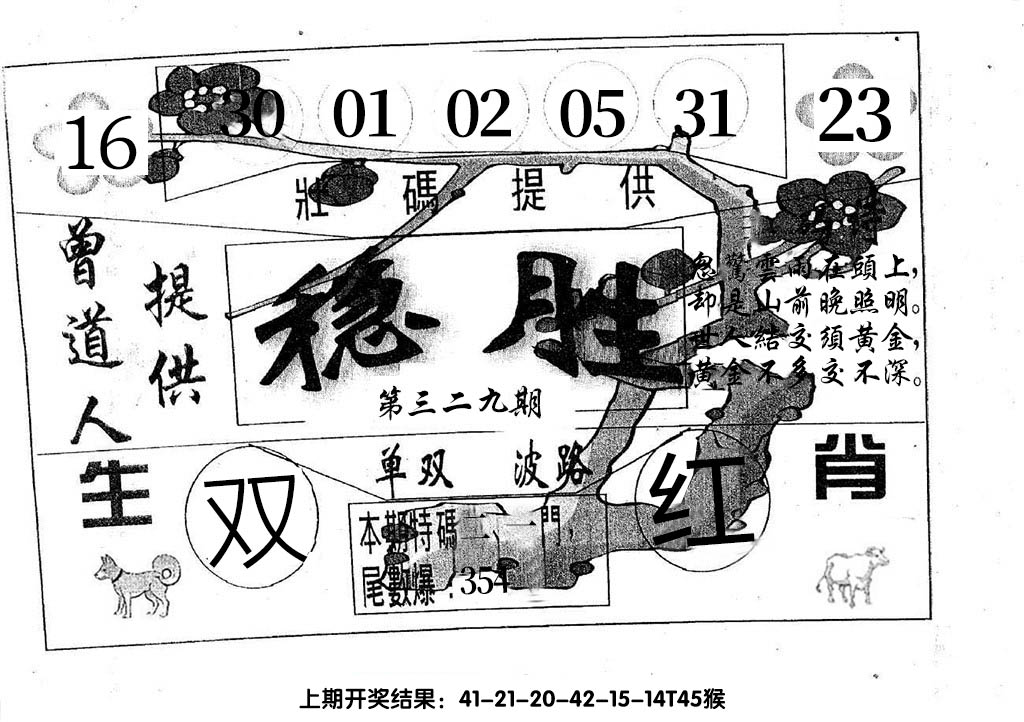 16 30 01 02 05 31 23
壯碼提供
曾道人
提供
稳胜
第三二九期
忽驚雲雨在頭上，
却是山前晚照明。
世人結交須黃金，
黃金不多交不深。
单双 波路
生肖
双
红
本期特碼二、一門，
尾數爆：354
上期开奖结果：41-21-20-42-15-14T45猴